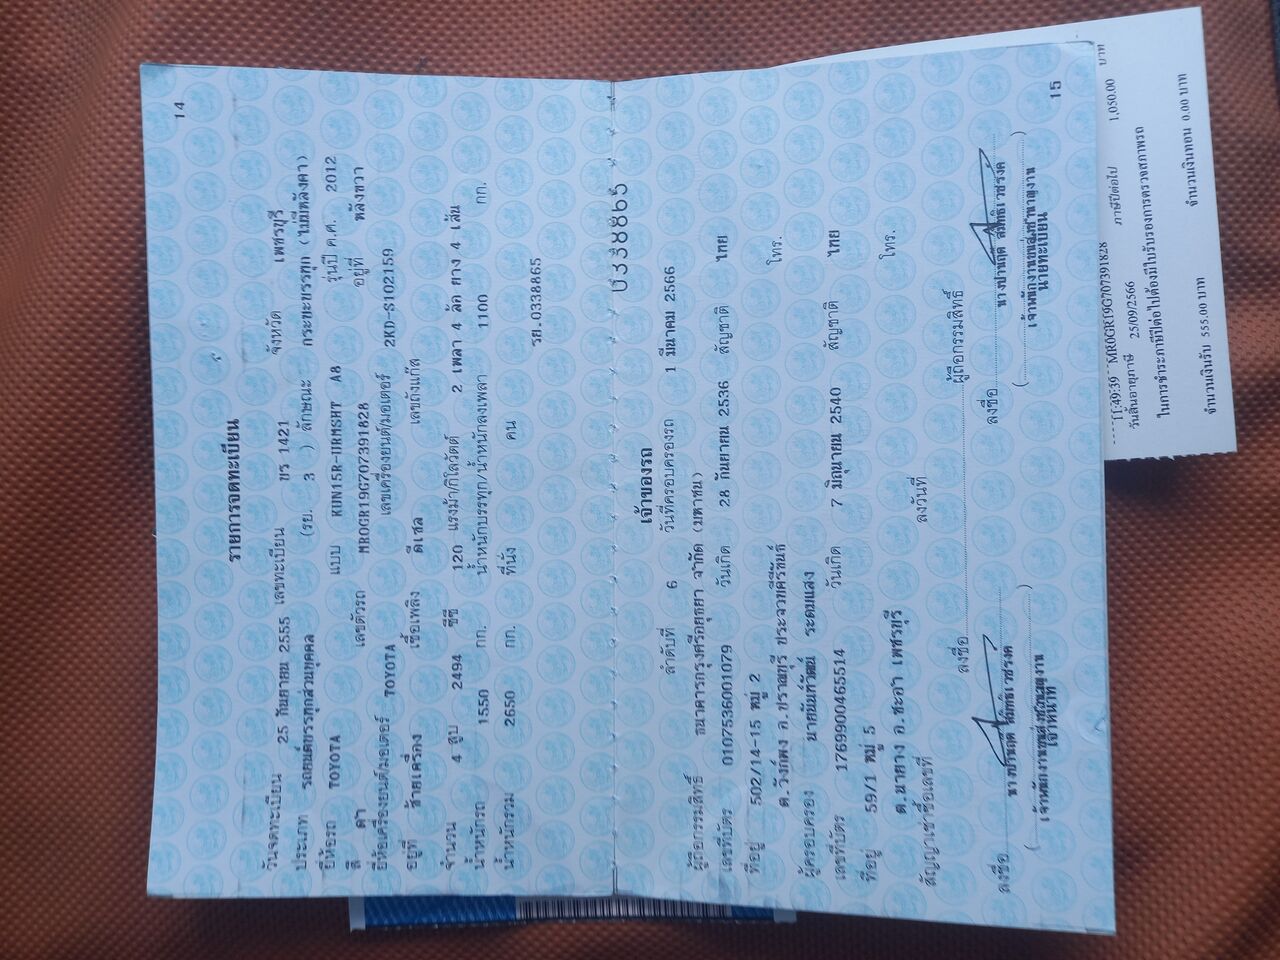 14
รายการจดทะเบียน
วันจดทะเบียน 25 กันยายน 2555 เลขทะเบียน ขร 1421 จังหวัด เพชรบุรี
ประเภท รถยนต์บรรทุกส่วนบุคคล (รย. 3 ) ลักษณะ กระบะบรรทุก (ไม่มีหลังคา)
ยี่ห้อรถ TOYOTA แบบ KUN15R-URMSHT A8 รุ่นปี ค.ศ. 2012
สี ดำ เลขตัวรถ MR0GR19G707391828 อยู่ที่ หลังขวา
ยี่ห้อเครื่องยนต์/มอเตอร์ TOYOTA เลขเครื่องยนต์/มอเตอร์ 2KD-S102159
อยู่ที่ ซ้ายเครื่อง เชื้อเพลิง ดีเซล เลขถังแก๊ส
จำนวน 4 สูบ 2494 ซีซี 120 แรงม้า/กิโลวัตต์ 2 เพลา 4 ล้อ ยาง 4 เส้น
น้ำหนักรถ 1550 กก. น้ำหนักบรรทุก/น้ำหนักลงเพลา 1100 กก.
น้ำหนักรวม 2650 กก. ที่นั่ง คน
รย.0338865
0338865
เจ้าของรถ
ลำดับที่ 6 วันที่ครอบครองรถ 1 มีนาคม 2566
ผู้ถือกรรมสิทธิ์ ธนาคารกรุงศรีอยุธยา จำกัด (มหาชน)
เลขที่บัตร 0107536001079 วันเกิด 28 กันยายน 2536 สัญชาติ ไทย
ที่อยู่ 502/14-15 หมู่ 2 โทร.
ต.วังก์พง อ.ปราณบุรี ประจวบคีรีขันธ์
ผู้ครอบครอง นายนันทวัฒน์ ระดมแสง
เลขที่บัตร 1769900465514 วันเกิด 7 มิถุนายน 2540 สัญชาติ ไทย
ที่อยู่ 59/1 หมู่ 5 โทร.
ต.นายาง อ.ชะอำ เพชรบุรี
สัญญาเช่าซื้อเลขที่ ลงวันที่
ลงชื่อ ผู้ถือกรรมสิทธิ์
ลงชื่อ ลงชื่อ
เจ้าพนักงานขนส่งชำนาญงาน เจ้าพนักงานขนส่งชำนาญงาน
เจ้าหน้าที่ นายทะเบียน
15
11:49:39 MR0GR19G707391828 ภาษีปีต่อไป 1,050.00 บาท
วันสิ้นอายุภาษี 25/09/2566
ในการชำระภาษีปีต่อไปต้องมีใบรับรองการตรวจสภาพรถ
จำนวนเงินรับ 555.00 บาท จำนวนเงินทอน 0.00 บาท